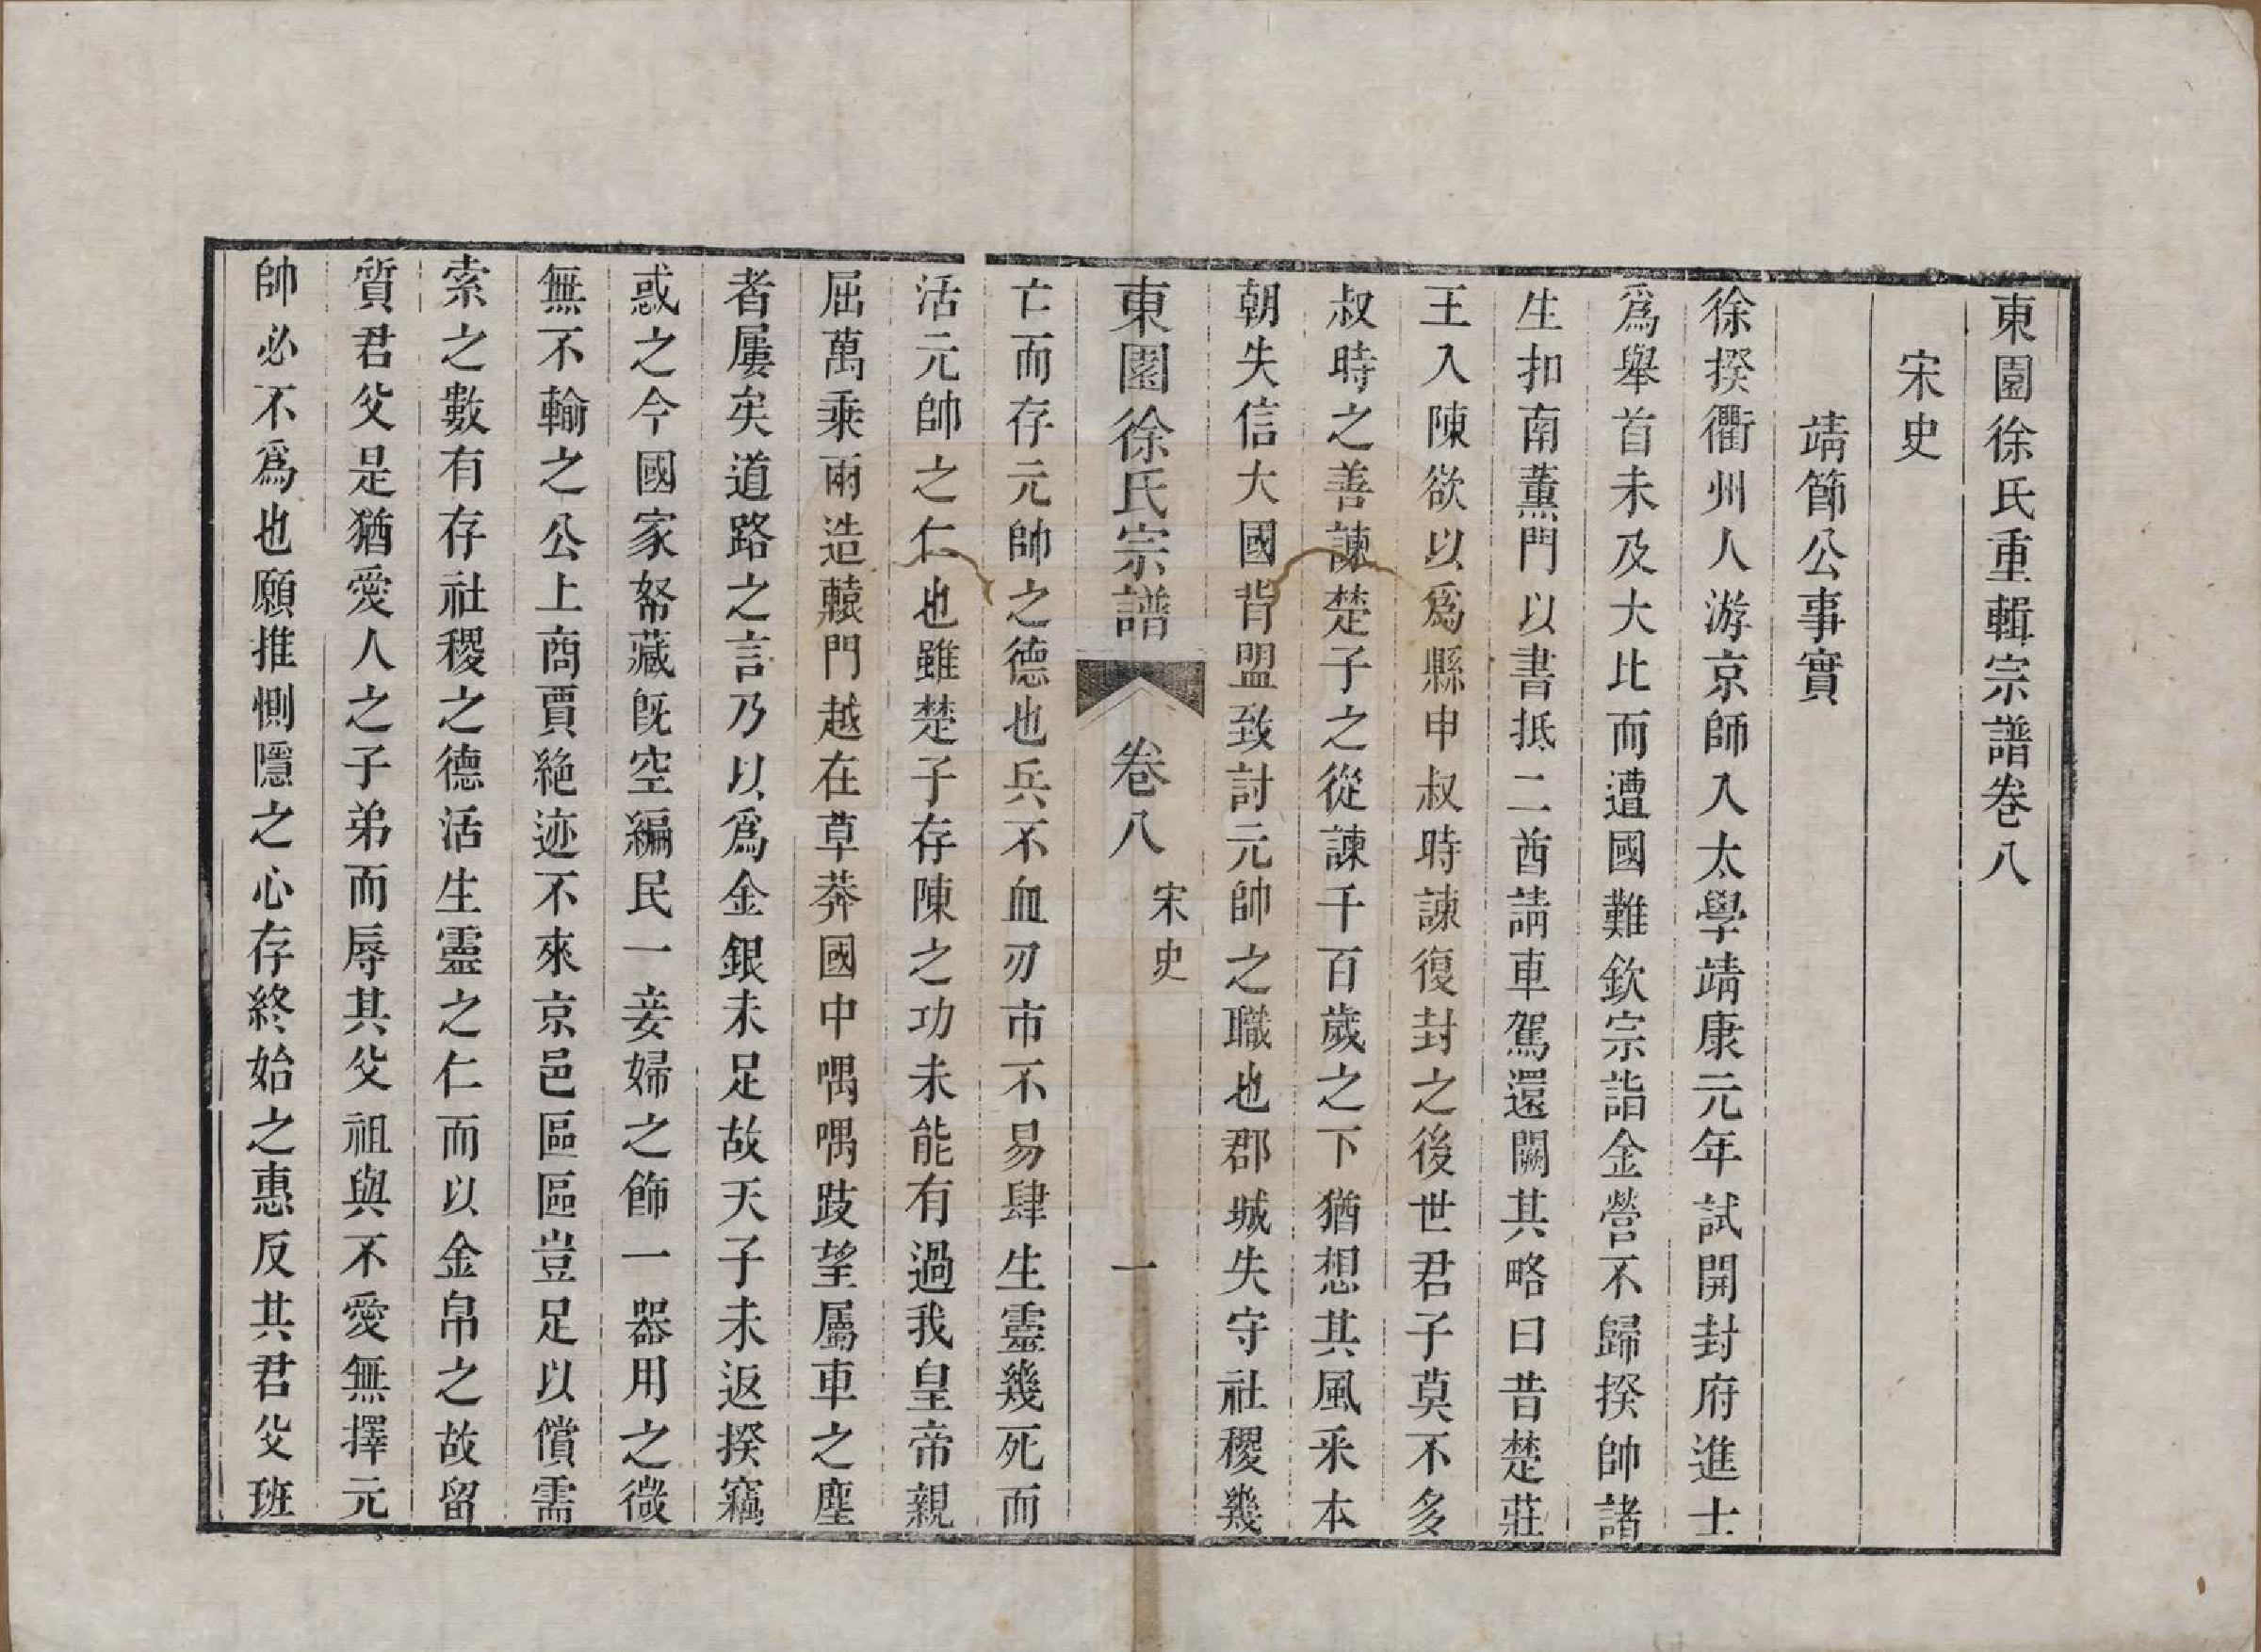 東園徐氏重輯宗譜卷八
宋史
靖節公事實
徐揆衢州人游京師入太學靖康元年試開封府進士
爲舉首未及大比而遭國難欽宗詣金營不歸揆帥諸
生扣南薰門以書抵二酋請車駕還闕其略曰昔楚莊
王入陳欲以爲縣申叔時諫復封之後世君子莫不多
叔時之善諫楚子之從諫千百歲之下猶想其風釆本
朝失信大國背盟致討元帥之職也郡城失守社稷幾
東園徐氏宗譜
卷八
宋史
一
亡而存元帥之德也兵不血刃市不易肆生靈幾死而
活元帥之仁也雖楚子存陳之功未能有過我皇帝親
屈萬乘兩造轅門越在草莽國中喁喁跂望屬車之塵
者屢矣道路之言乃以爲金銀未足故天子未返揆竊
惑之今國家帑藏旣空編民一妾婦之飾一器用之微
無不輸之公上商賈絶迹不來京邑區區豈足以償需
索之數有存社稷之德活生靈之仁而以金帛之故留
質君父是猶愛人之子弟而辱其父祖與不愛無擇元
帥必不爲也願推惻隱之心存終始之惠反其君父班